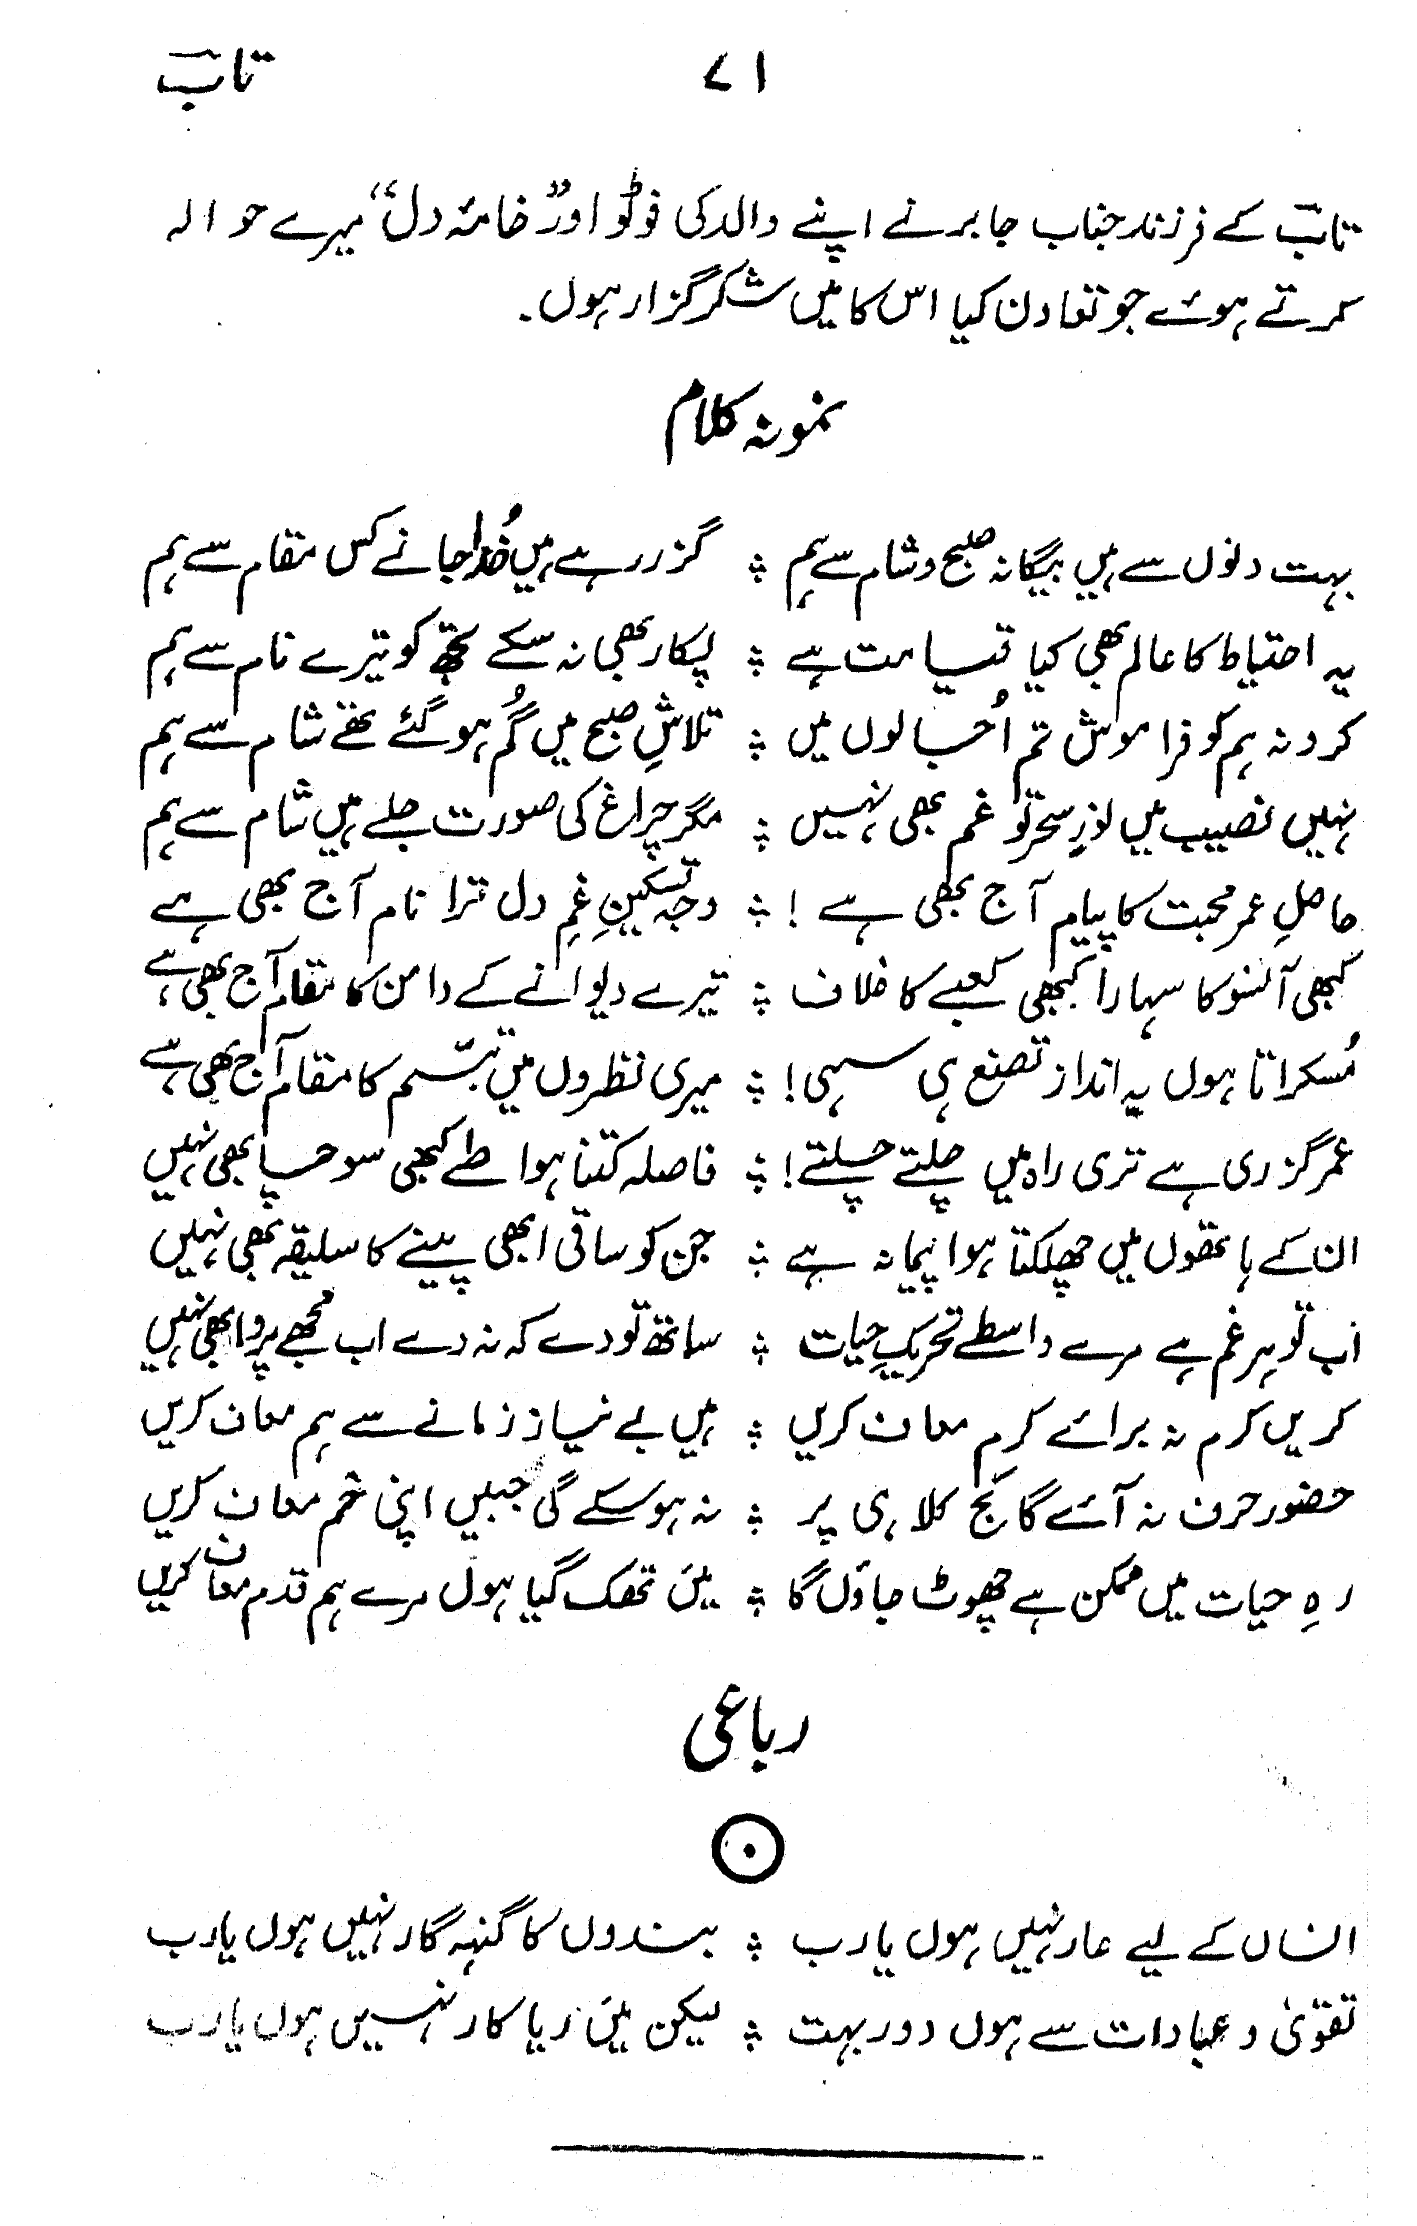 تاب ۷۱
تاب کے فرزند جناب جابر نے اپنے والد کی فوٹو اور "خامۂ دل" میرے حوالہ
کرتے ہوئے جو تعاون کیا اس کا میں شکر گزار ہوں۔
نمونہ کلام
بہت دنوں سے ہیں بیگانہ صبح و شام سے ہم ؞ گزر رہے ہیں خُدا جانے کس مقام سے ہم
یہ احتیاط کا عالم بھی کیا قیامت ہے ؞ پکار بھی نہ سکے تجھ کو تیرے نام سے ہم
کرو نہ ہم کو فراموش تم اُجالوں میں ؞ تلاشِ صبح میں گُم ہو گئے تھے شام سے ہم
نہیں نصیب میں نورِ سحر تو غم بھی نہیں ؞ مگر چراغ کی صورت جلے ہیں شام سے ہم
حاصلِ عمر محبت کا پیام آج بھی ہے ! ؞ وجہ تسکینِ غمِ دل ترا نام آج بھی ہے
کبھی آنسو کا سہارا کبھی کعبے کا غلاف ؞ تیرے دیوانے کے دامن کا مقام آج بھی ہے
مُسکراتا ہوں یہ انداز تصنع ہی سہی ! ؞ میری نظروں میں تبسّم کا مقام آج بھی ہے
عمر گزری ہے تری راہ میں چلتے چلتے ! ؞ فاصلہ کتنا ہوا طے کبھی سوچا بھی نہیں
ان کے ہاتھوں میں چھلکتا ہوا پیمانہ ہے ؞ جن کو ساقی ابھی پینے کا سلیقہ بھی نہیں
اب تو ہر غم ہے مرے واسطے تحریکِ حیات ؞ ساتھ تو دے کہ نہ دے اب مُجھے پروا بھی نہیں
کریں کرم نہ برائے کرم معاف کریں ؞ ہیں بے نیاز زمانے سے ہم معاف کریں
حضور حرف نہ آئے گا کج کلاہی پر ؞ نہ ہو سکے گی جبیں اپنی خم معاف کریں
رہِ حیات میں ممکن ہے چھوٹ جاؤں گا ؞ میں تھک گیا ہوں مرے ہم قدم معاف کریں
رباعی
انساں کے لیے عار نہیں ہوں یارب ؞ بندوں کا گنہہ گار نہیں ہوں یارب
تقویٰ و عبادات سے ہوں دور بہت ؞ لیکن میں ریا کار نہیں ہوں یارب